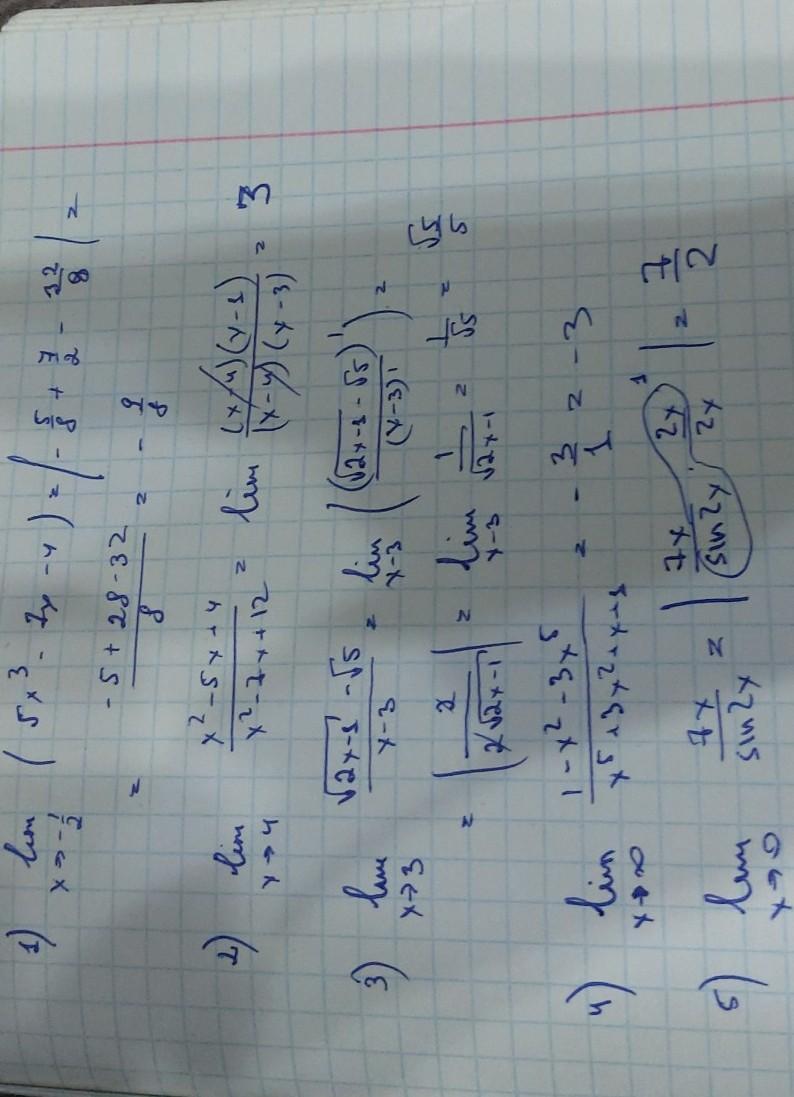 1) lim x→-1/2 (5x³ - 7x - 4) = | -5/8 + 7/2 - 32/8 | =
= (-5 + 28 - 32)/8 = -9/8
2) lim x→4 (x² - 5x + 4)/(x² - 7x + 12) = lim ((x-4)(x-1))/((x-4)(x-3)) = 3
3) lim x→3 (√(2x-1) - √5)/(x-3) = lim x-3 ((√(2x-1) - √5)'/(x-3)') =
= | 2/(2√(2x-1)) | = lim x-3 1/√(2x-1) = 1/√5 = √5/5
4) lim x→∞ (1 - x² - 3x⁵)/(x⁵ + 3x² + x + 1) = -3/1 = -3
5) lim x→0 7x/sin2x = | 7x/sin2x · 2x/2x 1 | = 7/2